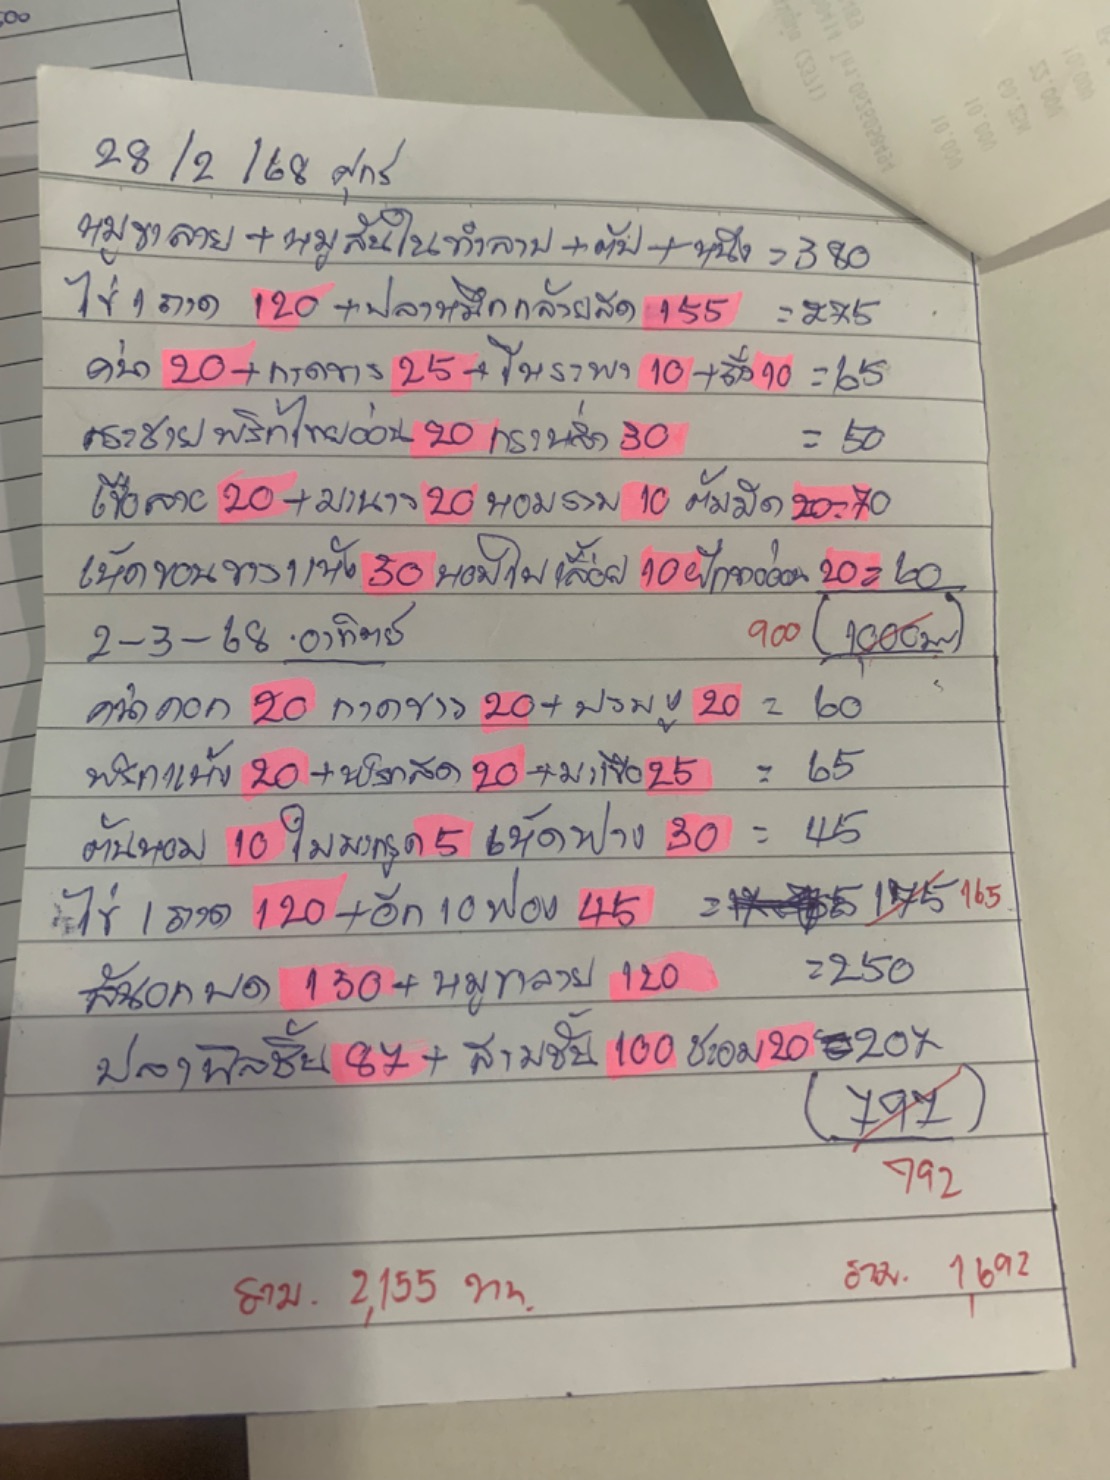 28/2/68 ศุกร์
หมูขาลาย + หมูสันในทำลาบ + ตับ + หนึ่ง = 380
ไข่ 1 ถาด 120 + ปลาหมึกกล้วยสด 155 = 275
คน้า 20 + กาดขาว 25 + ใบราพา 10 + 10 = 65
กระชาย พริกไทยอ่อน 20 กราน 30 = 50
เขือลาย 20 + มานาว 20 หอมราม 10 20 = 70
เห็ดขอนขาว แห้ง 30 10 ฝักขาอ่อน 20 = 60
900 (1000บ)
2-3-68 อาทิตย์
คน้าดอก 20 กาดขาว 20 + บรมงู 20 = 60
พริกแห้ง 20 + พริกสด 20 + มาเขือ 25 = 65
ต้นหอม 10 ใบมากรูด 5 เห็ดฟาง 30 = 45
ไข่ 1 ถาด 120 + อีก 10 ฟอง 45 = 175 165
สันอกบด 130 + หมูขาลาย 120 = 250
ปลาพิลชิ้น 87 + สามชั้น 100 ชะอม 20 = 207
(797)
792
รวม. 2,155 บาท. รวม. 1,692